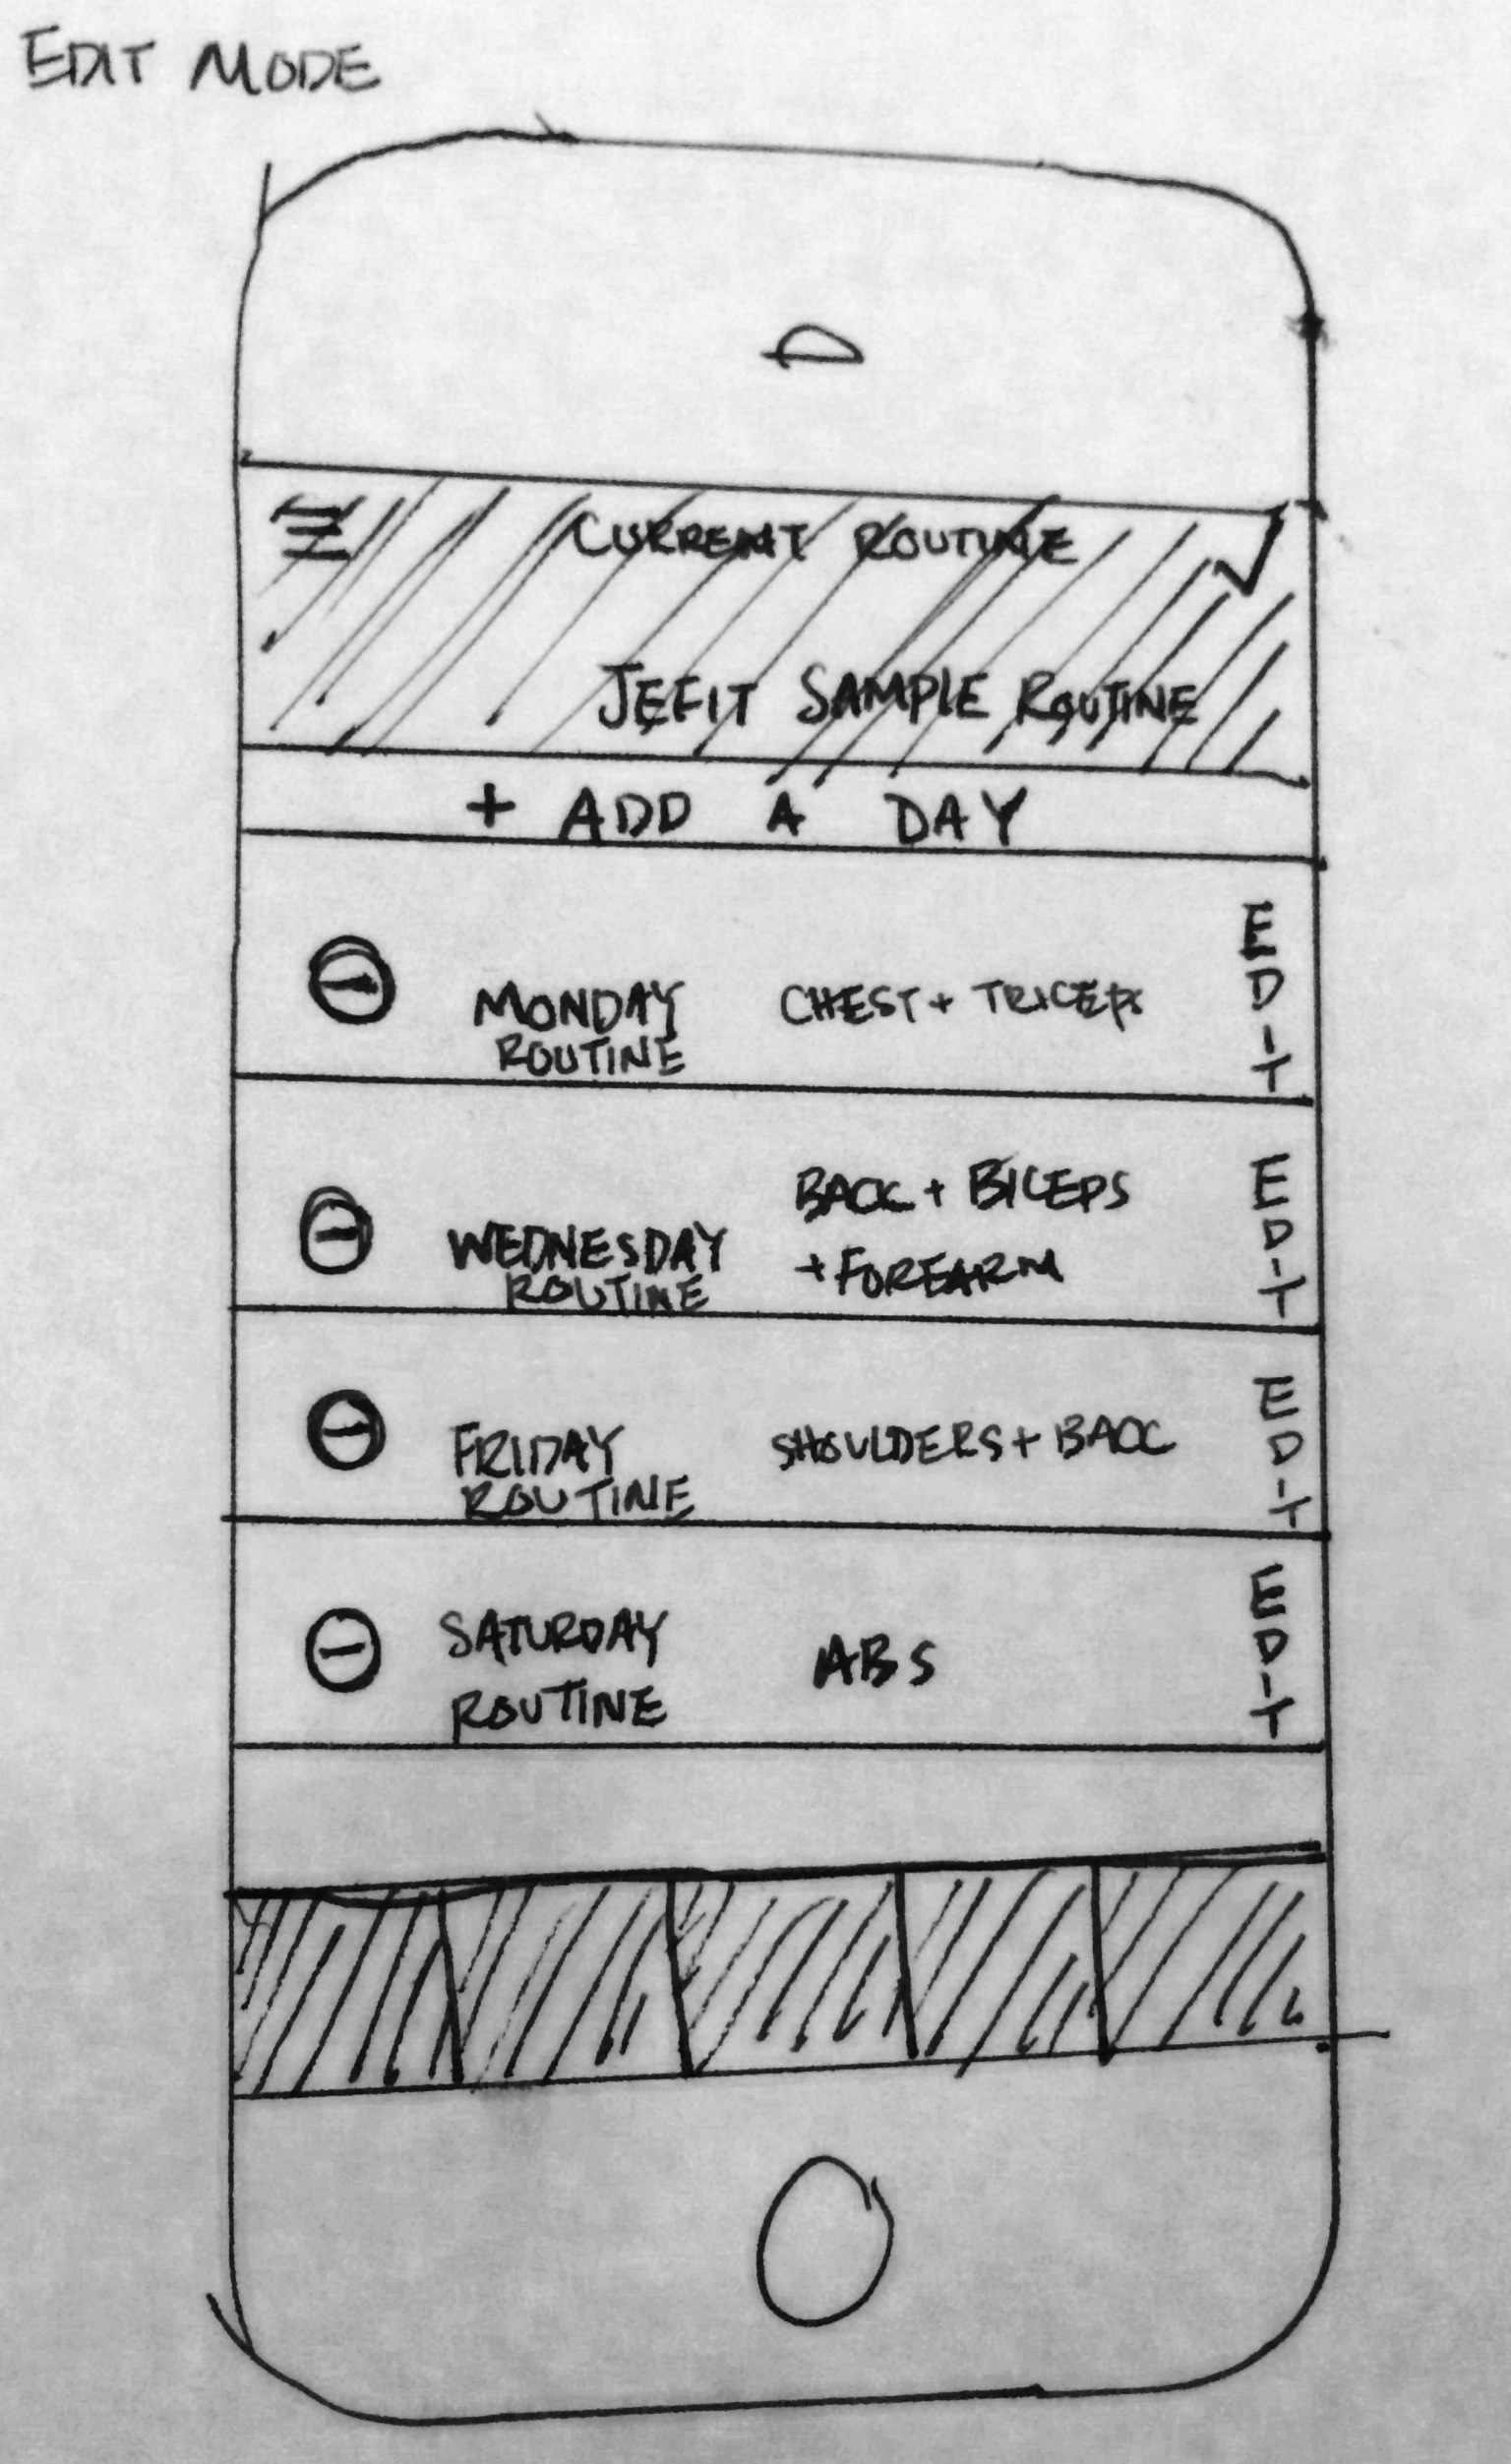 EDIT MODE
CURRENT ROUTINE
JEFIT SAMPLE ROUTINE
+ ADD A DAY
MONDAY
ROUTINE
CHEST + TRICEPS
EDIT
WEDNESDAY
ROUTINE
BACK + BICEPS
+ FOREARM
EDIT
FRIDAY
ROUTINE
SHOULDERS + BACK
EDIT
SATURDAY
ROUTINE
ABS
EDIT